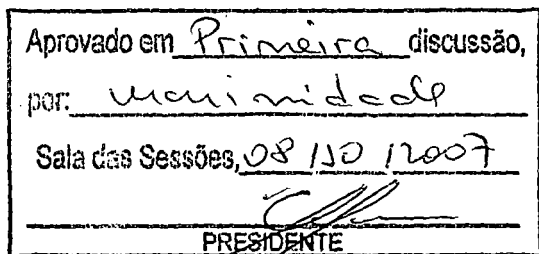 Aprovado em Primeira discussão,
por: unanimidade
Sala das Sessões, 08/10/2007
PRESIDENTE